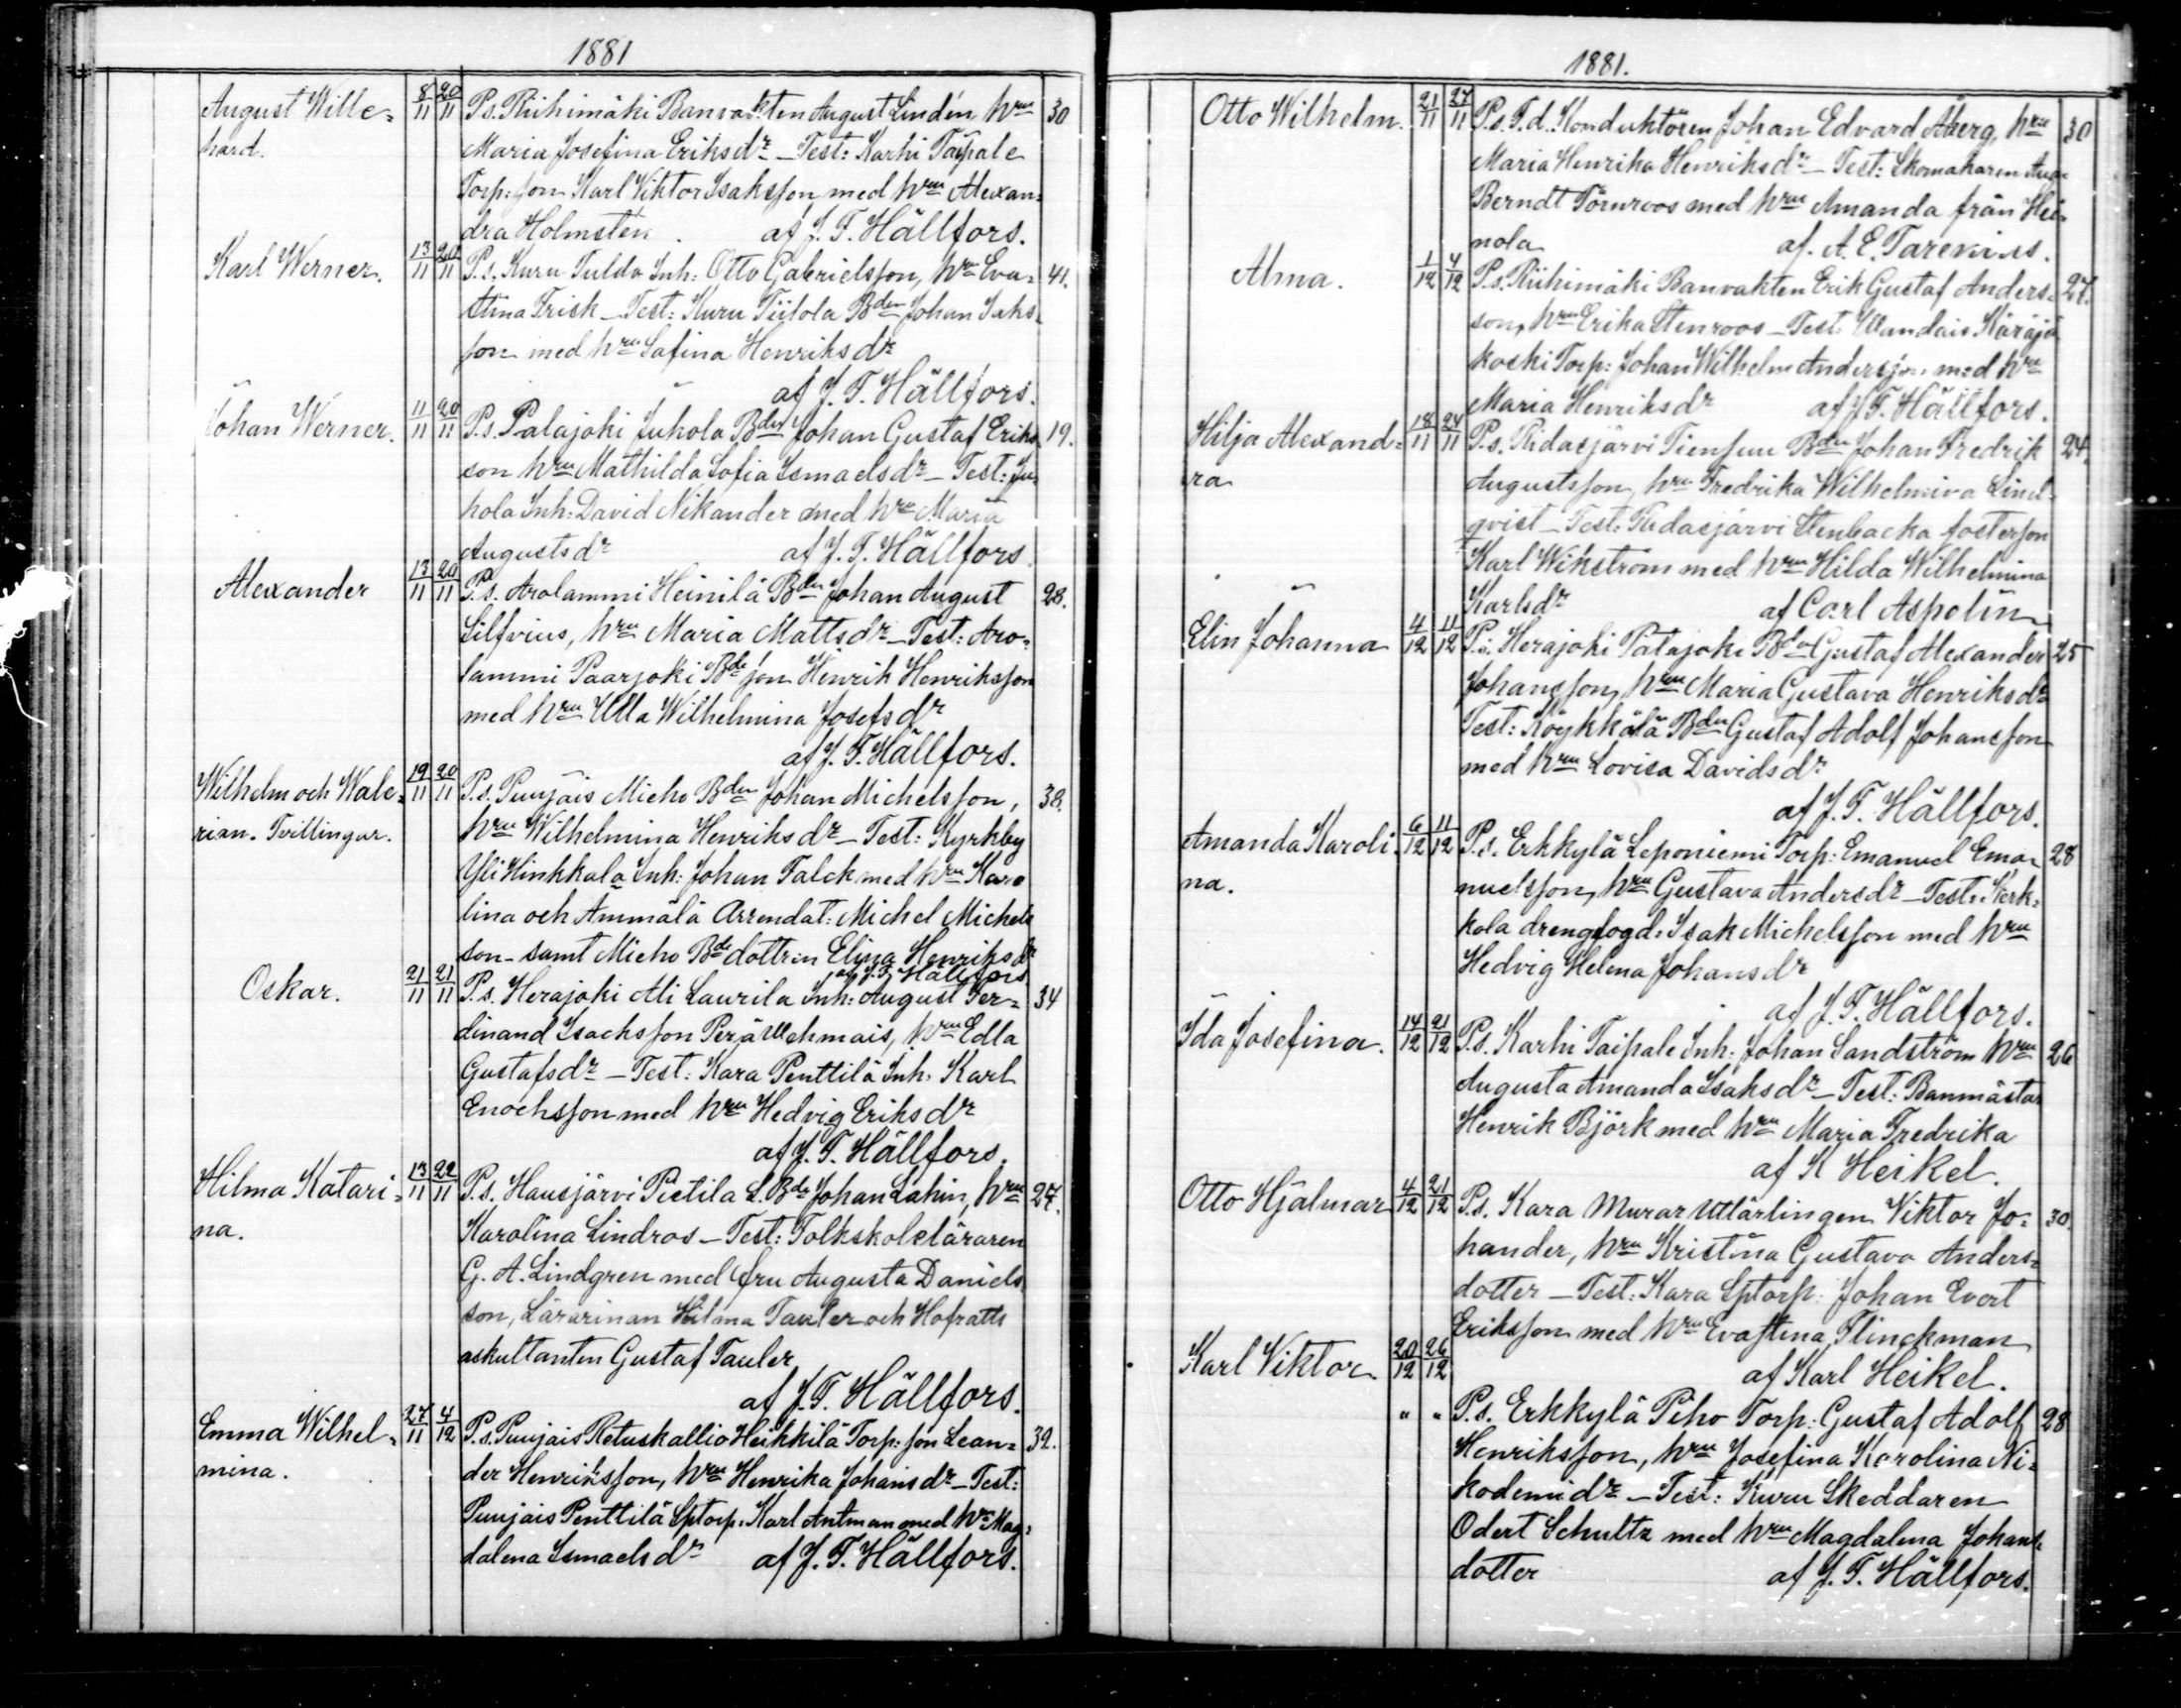 1881
August Wille= 8/11 20/11 P.s. Riihimäki Banvakten August Lindén, hru 30
hard. Maria Josefina Eriksdr – Test: Karhi Taipale
Torp: son Karl Viktor Isaksson med hru Alexan=
dra Holmstén. af J. F. Hällfors.
Karl Werner. 13/11 20/11 P.s. Kuru Tulda Inh: Otto Gabrielsson, hru Eva 41.
Stina Frisk – Test: Kuru Tiilola Bden Johan Isaks
son med hru Safina Henriksdr
af J. F. Hällfors.
Johan Werner. 11/11 20/11 P.s. Palajoki Jukola Bden Johan Gustaf Eriks 19.
son hru Mathilda Sofia Ismaelsdr – Test: Ju
kola Inh: David Nikander med hru Maria
Augustsdr af J. F. Hällfors.
Alexander 13/11 20/11 P.s. Arolammi Heinilä Bden Johan August 28.
Silfvius, hru Maria Mattsdr – Test: Aro=
lammi Paarjoki Bde son Henrik Henriksson
med hru Ulla Wilhelmina Josefsdr
af J. F. Hällfors.
Wilhelm och Wale= 19/11 20/11 P.s. Puujais Micho Bden Johan Michelsson, 38.
rian. Tvillingar. hru Wilhelmina Henriksdr – Test: Kyrkby
Yli Hinkkala Inh: Johan Falck med hru Karo
lina och Ammälä Arrendat: Michel Michels
son – samt Micho Bde dottren Elina Henriksdr
af J. F. Hällfors
Oskar. 21/11 21/11 P.s. Herajoki Ali Laurila Inh: August Fer= 34
dinand Isachsson Perä Wehmais, hru Edla
Gustafsdr – Test: Kara Penttilä Inh. Karl
Enochsson med hru Hedvig Eriksdr
af J. F. Hällfors.
Hilma Katari= 13/11 22/11 P.s. Hausjärvi Pietila L. Bde Johan Lahin, hru 27.
na. Karolina Lindros – Test: Folkskoleläraren
G. A. Lindgren med fru Augusta Daniels
son, Lärarinan Hilma Tauler och Hofratts
askultanten Gustaf Tauler
af J. F. Hällfors.
Emma Wilhel= 27/11 4/12 P.s. Puujais Retuskallio Heikkilä Torp: son Lean= 32.
mina. der Henriksson, hru Henrika Johansdr – Test:
Puujais Penttilä Sptorp: Karl Antman med hru Mag=
dalena Ismaelsdr af J. F. Hällfors.
1881.
Otto Wilhelm. 21/11 27/11 P.s. F.d. Konduktören Johan Edvard Åberg, hru 30
Maria Henrika Henriksdr – Test: Skomakaren
Berndt Törnroos med hru Amanda från Hei=
nola af. A. E. Tarenius.
Alma. 1/12 4/12 P.s. Riihimäki Banvakten Erik Gustaf Anders= 27.
son, hru Erika Stenroos – Test. Käräjä
koski Torp: Johan Wilhelm Andersson med hru
Maria Henriksdr af J. F. Hällfors.
Hilja Alexand= 18/11 24/11 P.s. Ridasjärvi Tiensuu Bden Johan Fredrik 24.
ra Augustsson, hru Fredrika Wilhelmina Lind
qvist – Test: Ridasjärvi Stenbacka fosterson
Karl Wikström med hru Hilda Wilhelmina
Karlsdr af Carl Aspelin
Elin Johanna 4/12 11/12 P.s. Herajoki Patajoki Bden Gustaf Alexander 25
Johansson, hru Maria Gustava Henriksdr
Test: Köykkälä Bden Gustaf Adolf Johansson
med hru Lovisa Davidsdr
af J. F. Hällfors.
Amanda Karoli 6/12 11/12 P.s. Erkkylä Leponiemi Torp: Emanuel Ema= 28
na. nuelsson, hru Gustava Andersdr – Test: Kerk=
kola drengfogd: Isak Michelsson med hru
Hedvig Helena Johansdr
af J. F. Hällfors.
Ida Josefina. 14/12 21/12 P.s. Karhi Taipale Inh: Johan Sandström hru 26
Augusta Amanda Isaksdr – Test: Banmästar
Henrik Björk med hru Maria Fredrika
af K Heikel.
Otto Hjalmar 4/12 21/12 P.s. Kara Murar Utlärlingen Viktor Jo= 30.
hander, hru Kristina Gustava Anders=
dotter – Test: Kara Sptorp: Johan Evert
Eriksson med hru Eva Stina Flinckman
Karl Viktor. 20/12 26/12 af Karl Heikel.
" " P.s. Erkkylä Piho Torp: Gustaf Adolf 28
Henriksson, hru Josefina Karolina Ni=
kodemidr – Test: Kuru Skeddaren
Odert Schultz med hru Magdalena Johans
dotter af J. F. Hällfors.